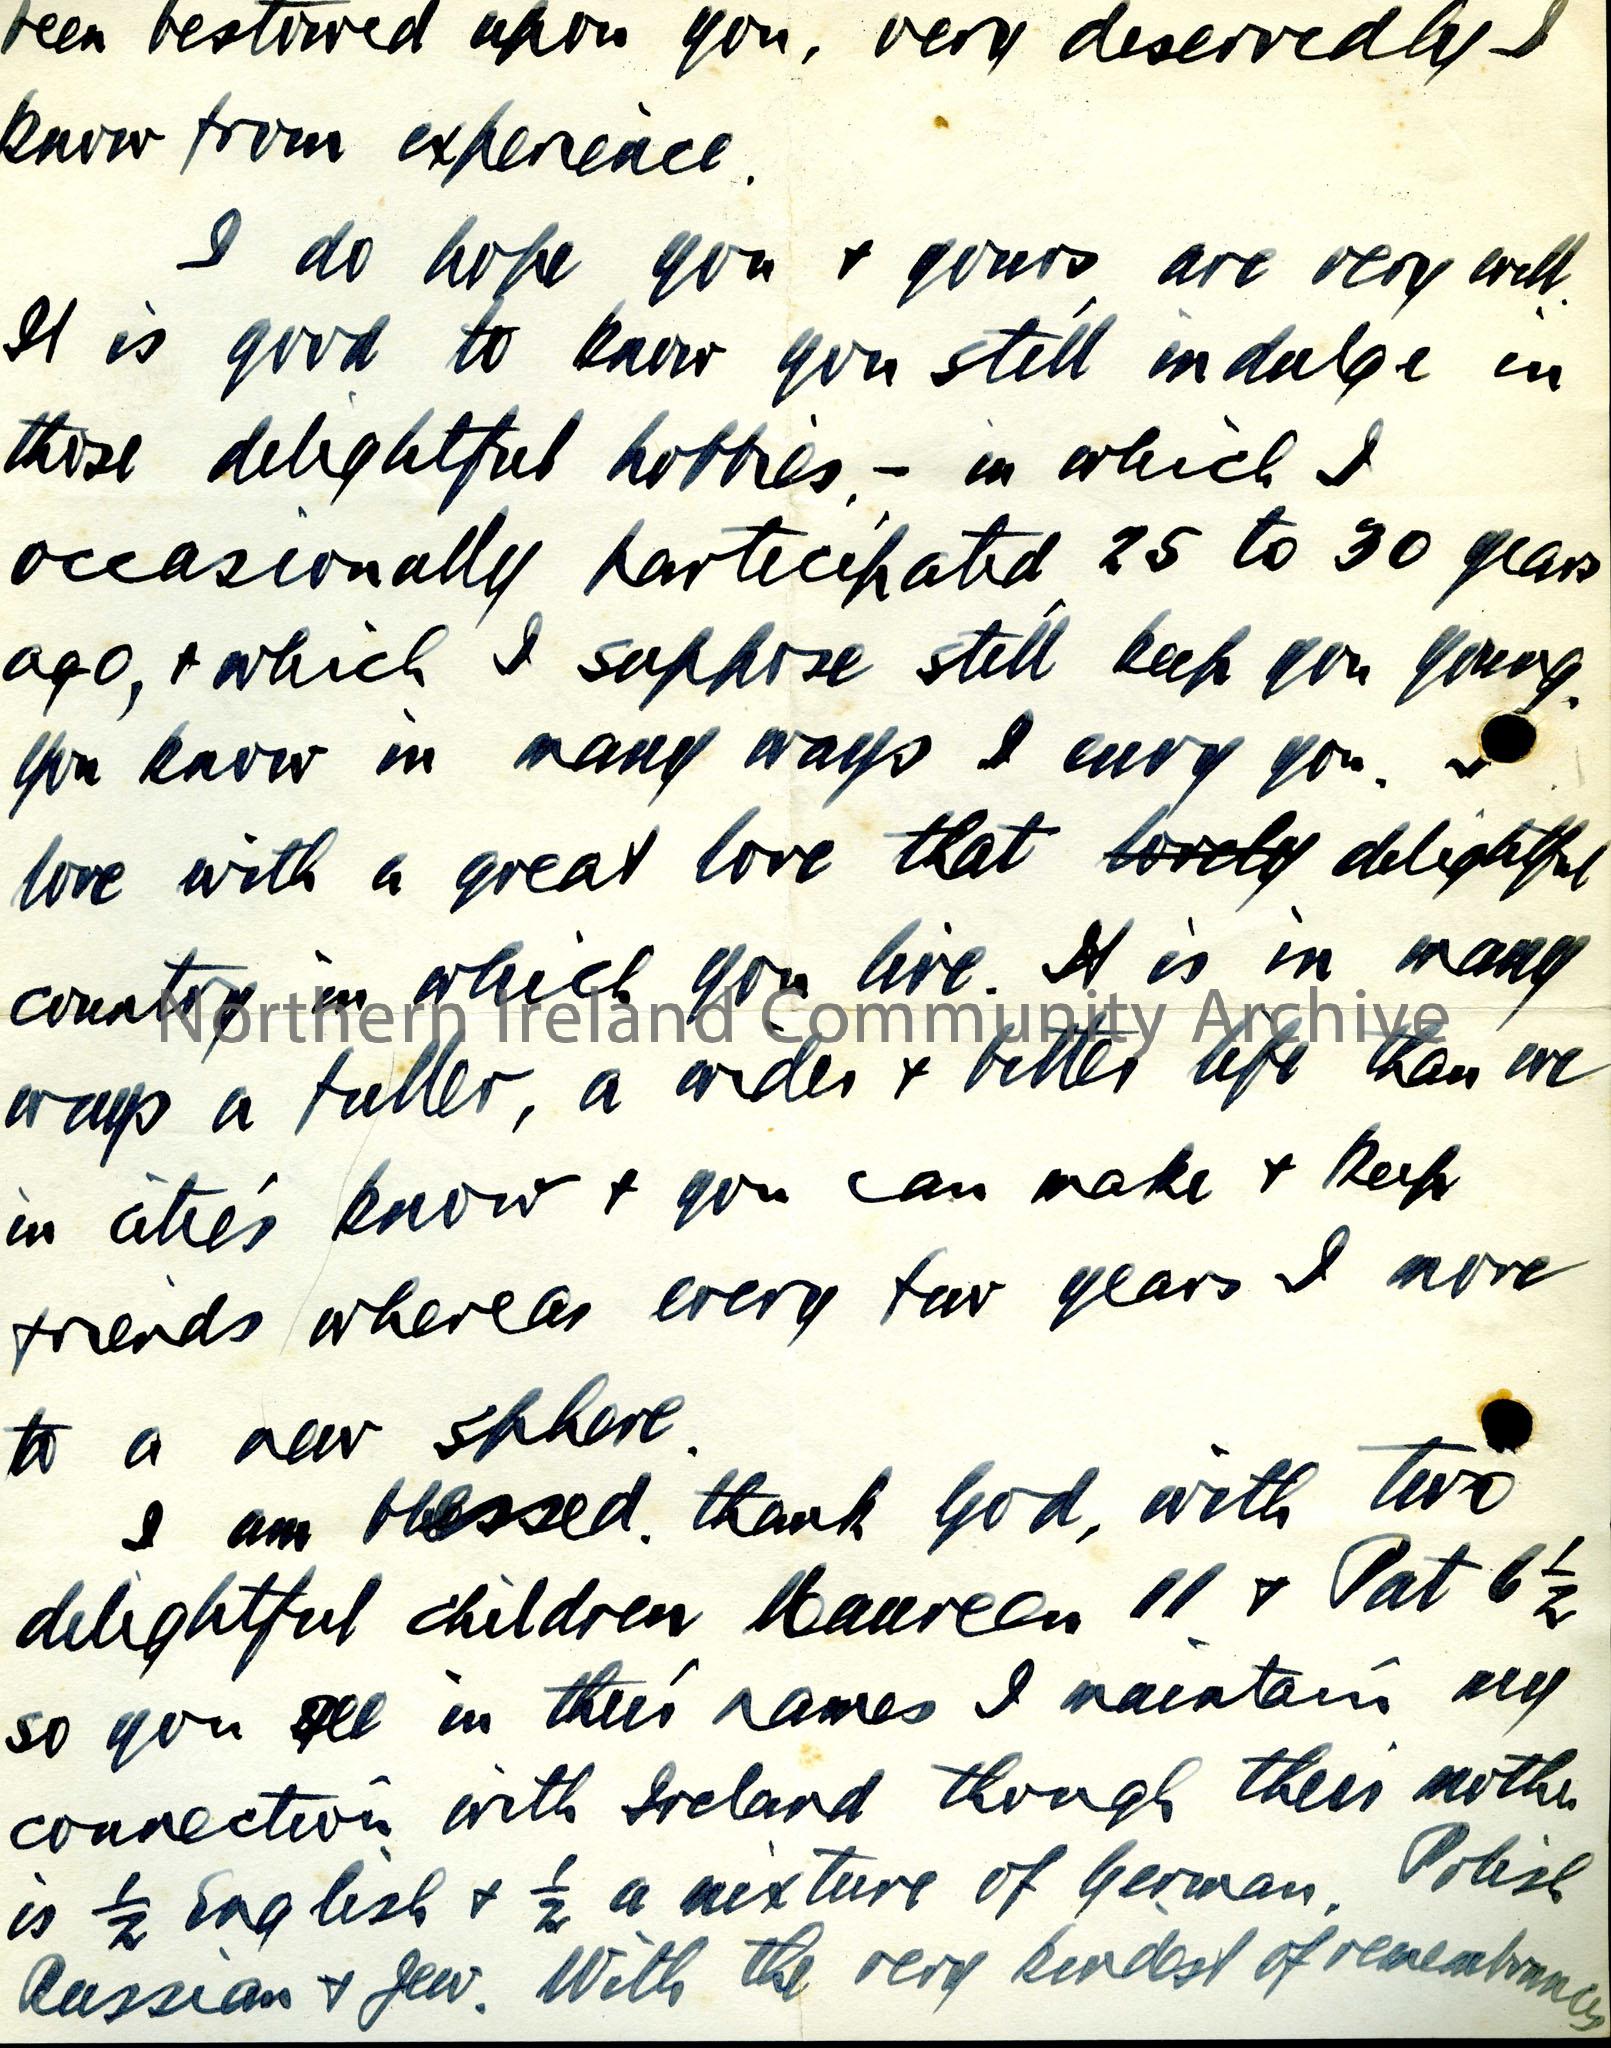 been bestowed upon you, very deservedly I
know from experience.
I do hope you + yours are very well.
It is good to know you still indulge in
those delightful hobbies, - in which I
occasionally participated 25 to 30 years
ago, + which I suppose still keep you young.
You know in many ways I envy you. I
love with a great love that lovely delightful
country in which you live. It is in many
Northern Ireland Community Archive
ways a fuller, a wider + better life than we
in cities know + you can make + keep
friends whereas every few years I move
to a new sphere.
I am blessed, thank God, with two
delightful children Maureen 11 + Pat 6 1/2
so you see in their names I maintain my
connection with Ireland though their mother
is 1/2 English + 1/2 a mixture of German, Polish
Russian + Jew. With the very kindest of remembrances